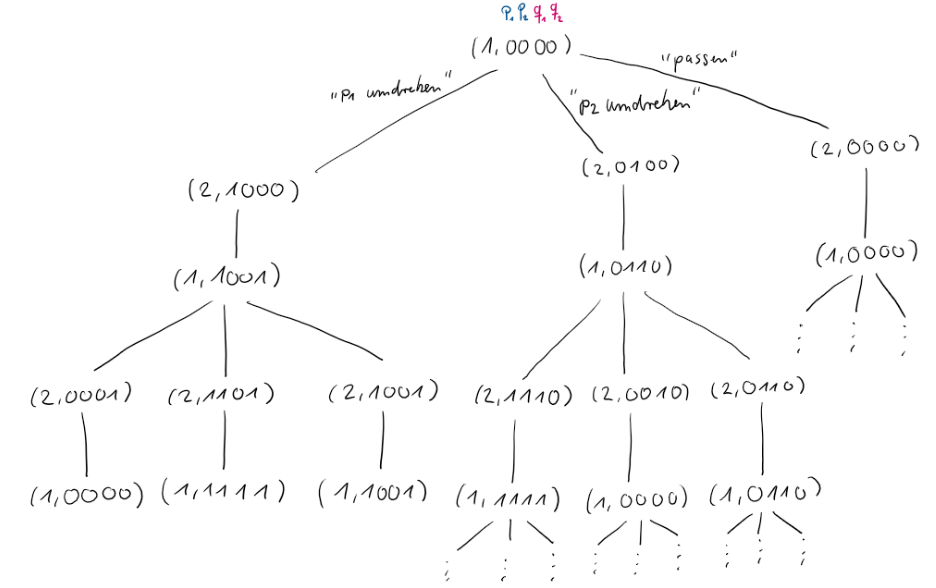 P₁ P₂ q₁ q₂
(1,0000)
"passen"
"P1 umdrehen"
"P2 umdrehen"
(2,0000)
(2,0100)
(2,1000)
(1,0000)
(1,0110)
(1,1001)
(2,0001) (2,1101) (2,1001) (2,1110) (2,0010) (2,0110)
(1,0000) (1,1111) (1,1001) (1,1111) (1,0000) (1,0110)